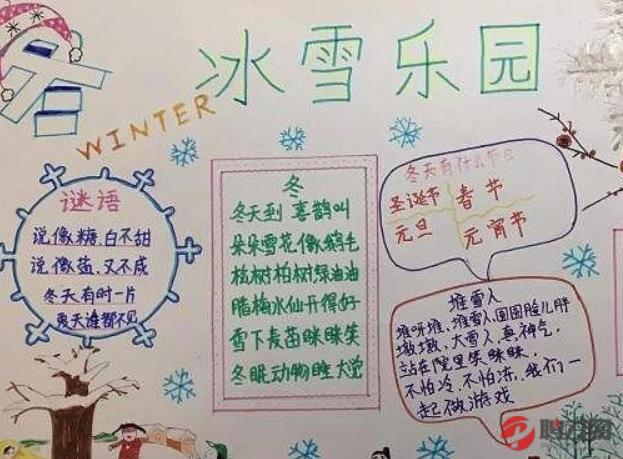 冬
冰雪乐园
WINTER
谜语
说像糖,白不甜
说像盐,又不咸
冬天有时一片
夏天谁都不见
冬
冬天到 喜鹊叫
朵朵雪花像鹅毛
松树柏树绿油油
腊梅水仙开得好
雪下麦苗眯眯笑
冬眠动物睡大觉
冬天有什么节日
圣诞节 春节
元旦 元宵节
堆雪人
堆呀堆,堆雪人,圆圆脸儿胖
墩墩,大雪人,真神气,
站在院里笑眯眯,
不怕冷,不怕冻,我们一
起做游戏